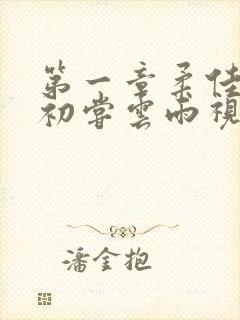 第一章柔佳
初尝雲雨視
潘金抱